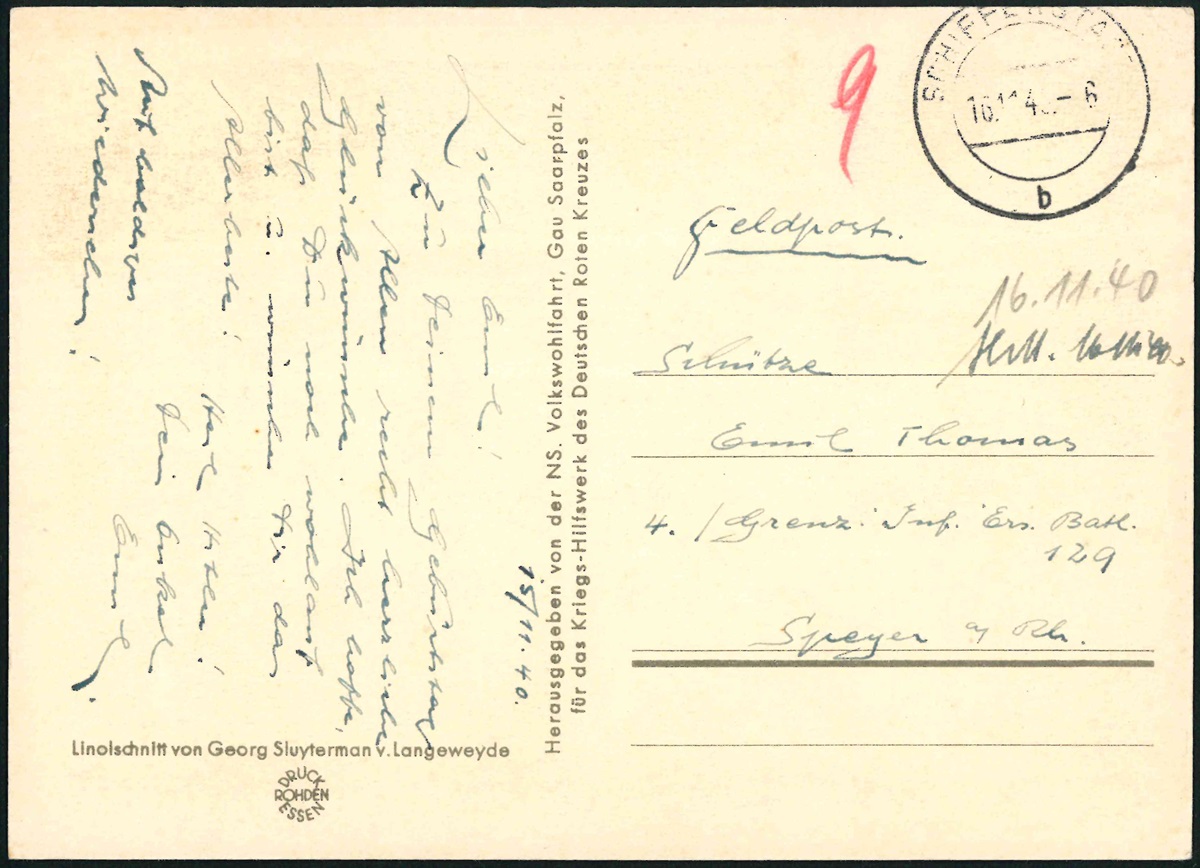 15/11.40.
Lieber Emil!
Zu Deinem Geburtstag
von Allen recht herzliche
Glückwünsche. Ich hoffe,
daß Du noch wohlauf
bist u. wünschen Dir das
Allerbeste!
Heil Hitler!
Auf baldiges
Dein Onkel
Wiedersehen!
Emil.
Herausgegeben von der NS. Volkswohlfahrt, Gau Saarpfalz,
für das Kriegs-Hilfswerk des Deutschen Roten Kreuzes
Linolschnitt von Georg Sluyterman v. Langeweyde
DRUCK
ROHDEN
ESSEN
9
SCHIFFERSTA
16.11.4 - 6
b
Feldpost.
16.11.40
Schütze
Emil Thomas
4./Grenz. Inf. Ers. Batl.
129
Speyer a/ Rh.